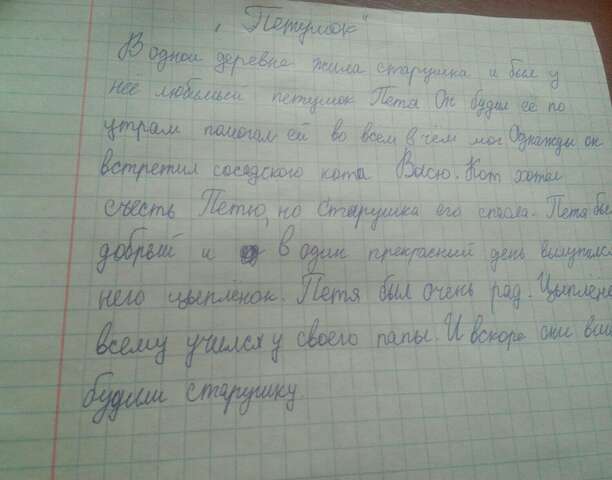 „Петушок"
В одной деревне жила старушка и был у
неё любимый петушок Петя Он будил её по
утрам помогал ей во всем в чем мог Однажды он
встретил соседского кота Васю. Кот хотел
съесть Петю, но старушка его спасла. Петя был
добрый и в один прекрасный день вылупился
него цыпленок. Петя был очень рад. Цыплёнок
всему учился у своего папы. И вскоре они
будили старушку